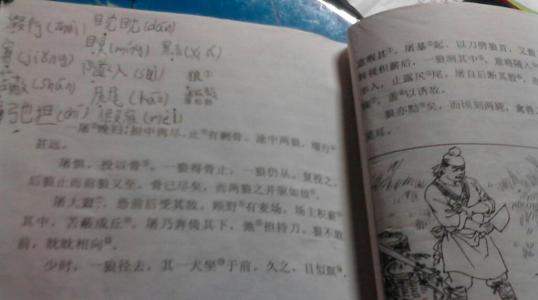 缀行(zhuì) 眈眈(dān)
窘(jiǒng) 瞑(míng) 黠(xiá)
隧入(suì) 狼
尻尾(kāo)
蒲松龄
屠晚归，担中肉尽，止有剩骨。途中两狼，缀行
甚远。
屠惧，投以骨。一狼得骨止，一狼仍从。复投之，
后狼止而前狼又至。骨已尽矣，而两狼之并驱如故。
屠大窘，恐前后受其敌。顾野有麦场，场主积薪
其中，苫蔽成丘。屠乃奔倚其下，弛担持刀。狼不敢
前，眈眈相向。
少时，一狼径去，其一犬坐于前。久之，目似瞑，
意暇甚。屠暴起，以刀劈狼首，又
转视积薪后，一狼洞其中，意将隧入
半入，止露尻尾。屠自后断其股，亦
盖以诱敌。
狼亦黠矣，而顷刻两毙，禽兽
笑耳。